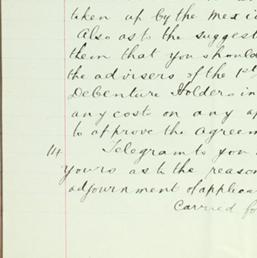 taken up by the Mexic
Also as to the suggest
them that you should
the advisers of the 1st
Debenture Holders in
any costs on any ap
to approve the Agreem
14 Telegram to you
yours as to the reason
adjournment of applica
Carried fo